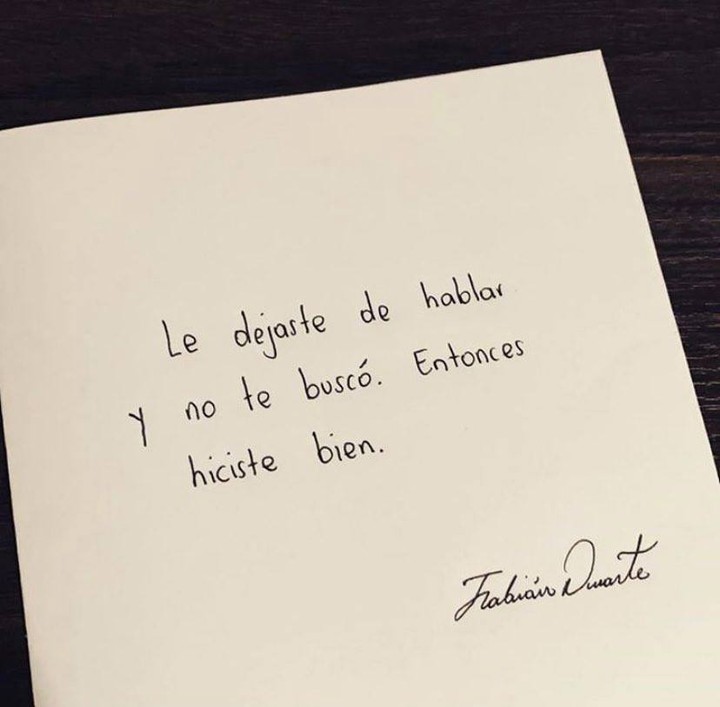 Le dejaste de hablar
y no te buscó. Entonces
hiciste bien.
Fabián Duarte